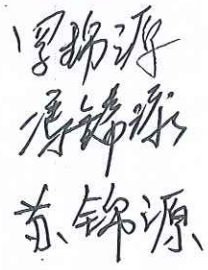 罗锦源
冯锦源
苏锦源